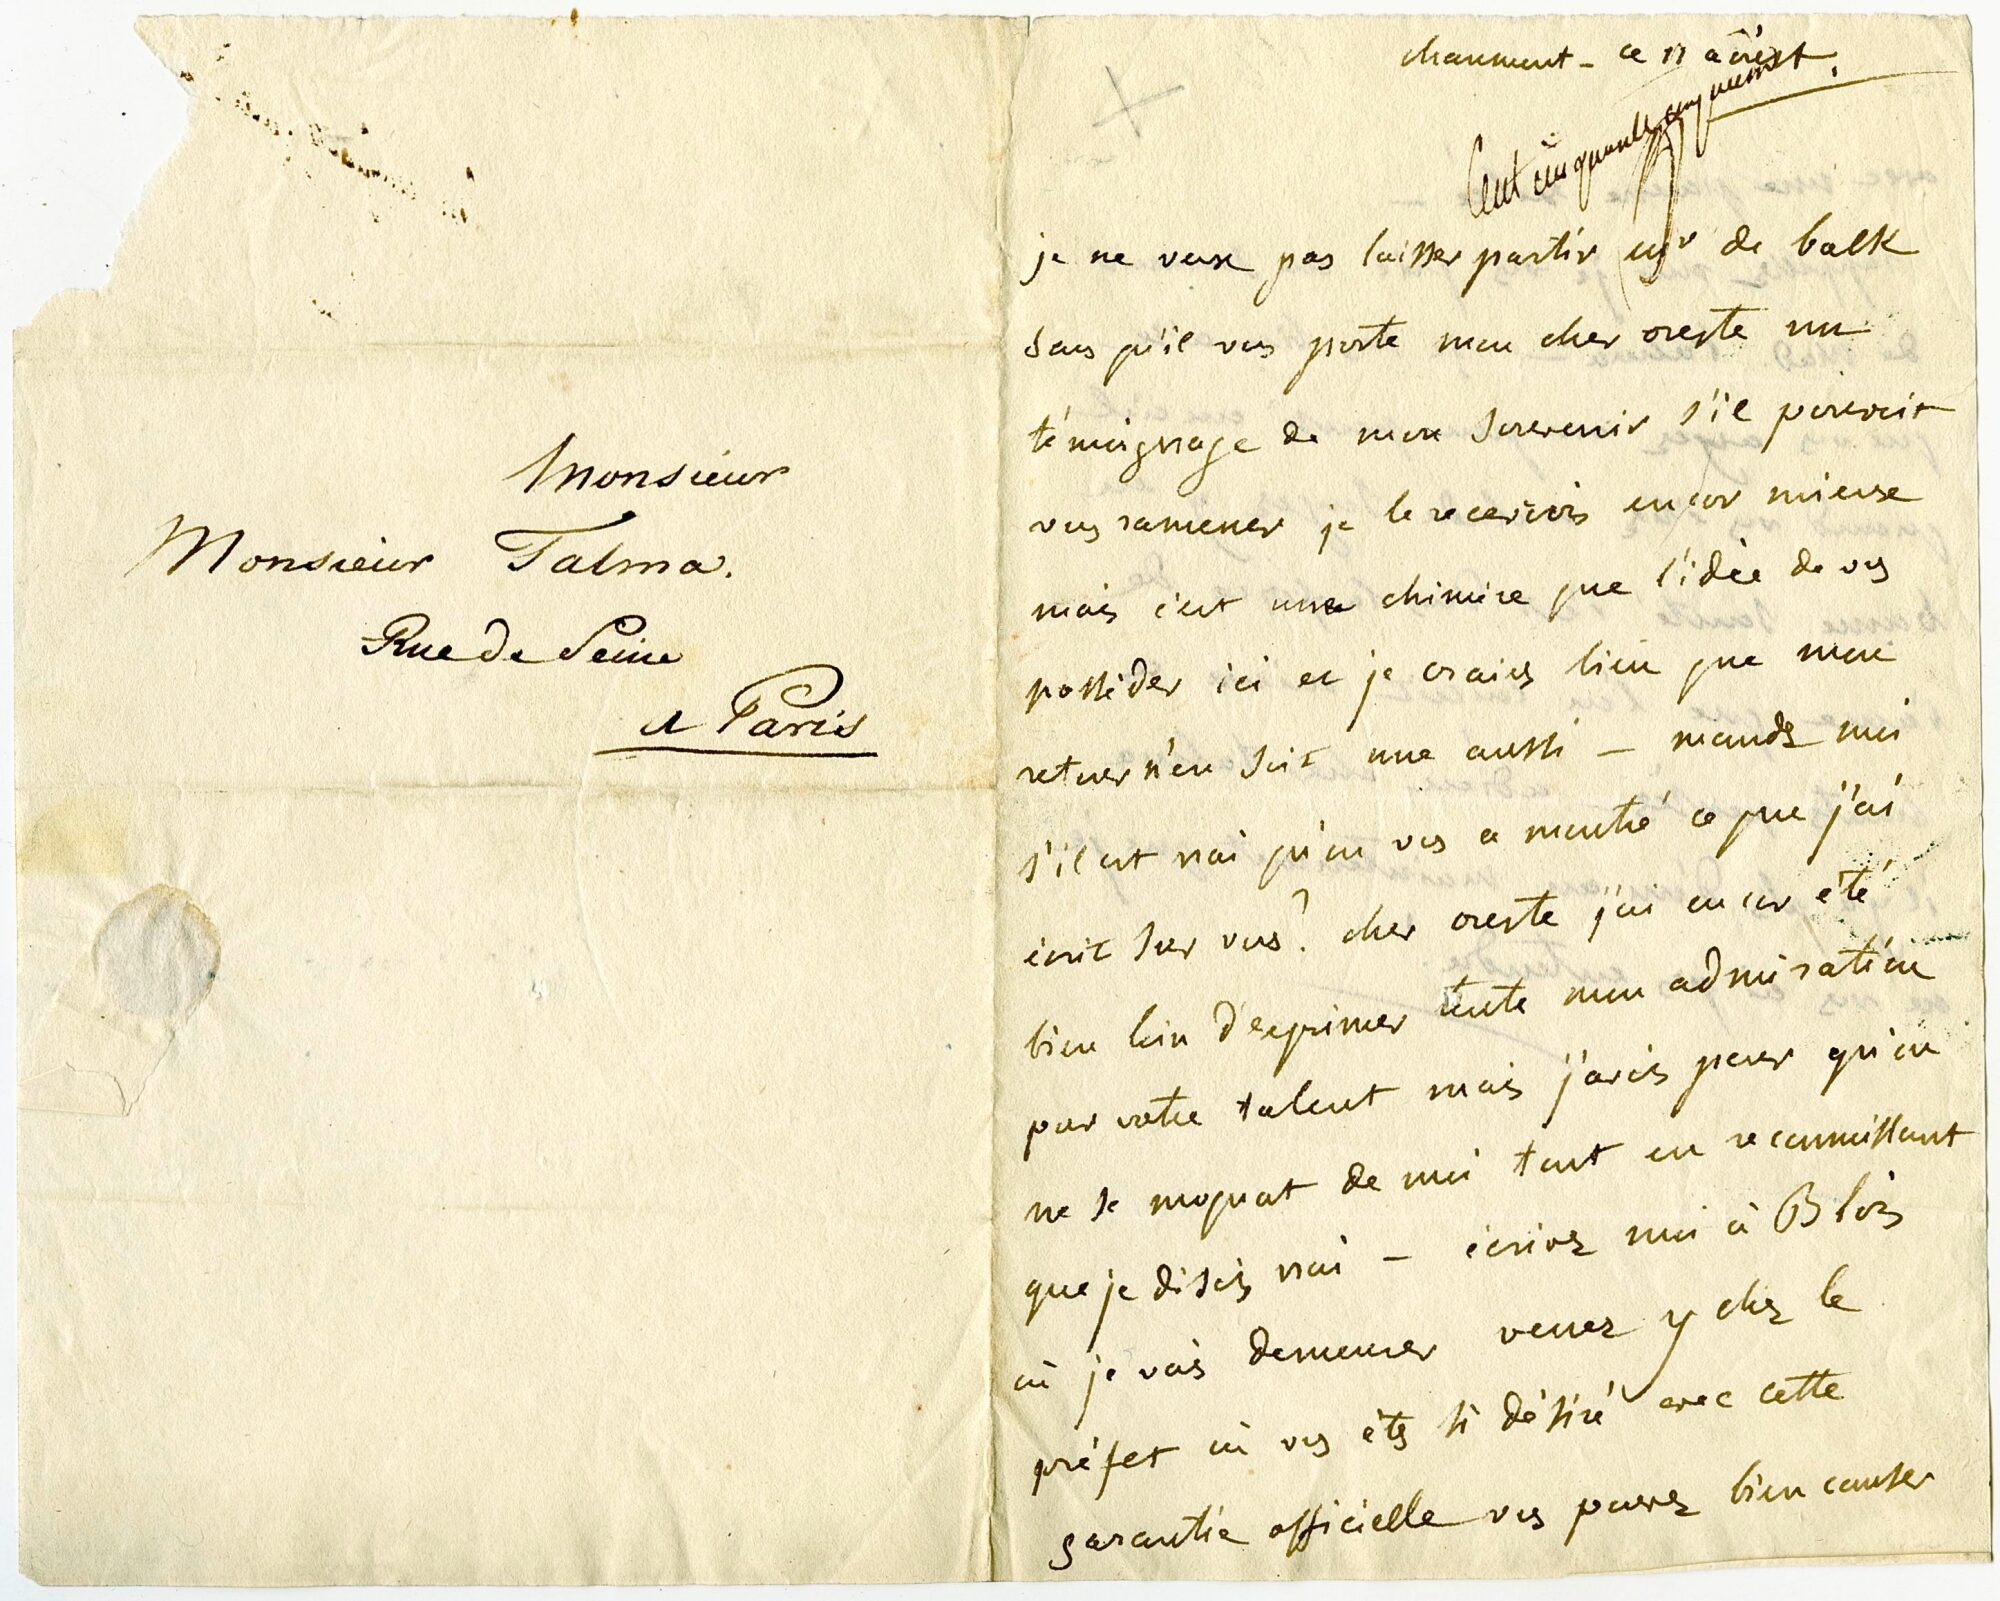 Monsieur
Monsieur Talma.
Rue de Seine
a Paris
chaumont - ce 11 août
Cent cinquante cinquieme
je ne veux pas laisser partir mr de balk
sans qu'il vous porte mon cher oreste un
témoignage de mon souvenir s'il pouvoit
vous ramener je le recevrois encor mieux
mais c'est une chimere que l'idée de vs
posséder ici et je crains bien que mon
retour n'en soit une aussi - mandez moi
s'il est vrai qu'on vs a montré ce que j'ai
écrit sur vous? cher oreste j'ai encor été
bien loin d'exprimer toute mon admiration
pour votre talent mais j'avois peur qu'on
ne se moquat de moi tout en reconnoissant
que je disois vrai - écrivez moi à Blois
où je vais demeurer venez y chez le
préfet où vs êtes si désiré avec cette
garantie officielle vs pouvez bien causer